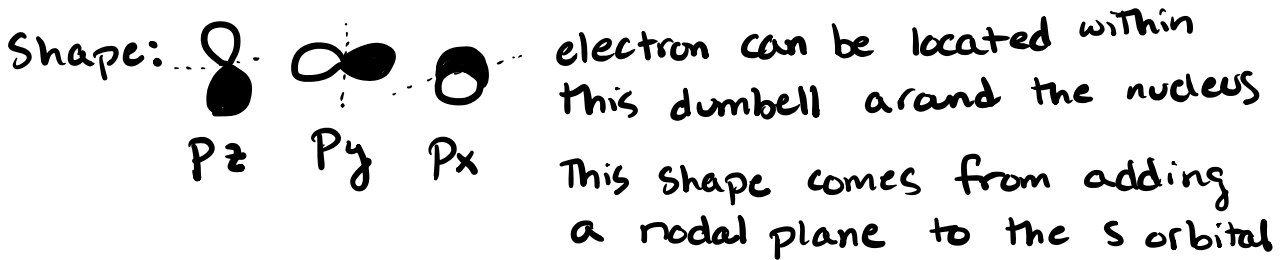 Shape:
Pz Py Px
electron can be located within
this dumbell around the nucleus
This shape comes from adding
a nodal plane to the s orbital